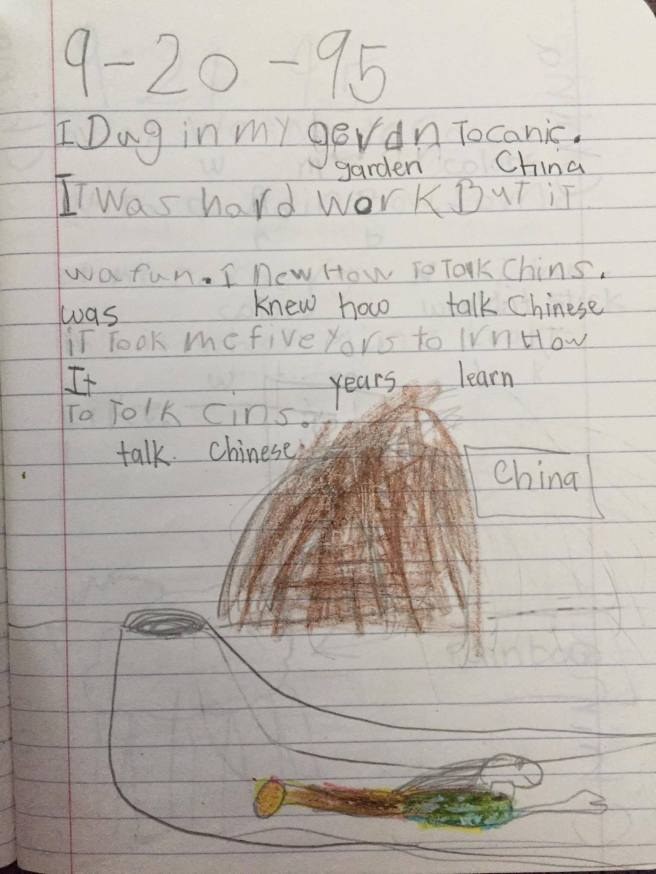 9-20-95
I Dug in my gerdn Tocanic.
garden China
IT Was hard work But iT
wa fun. I new How To Talk Chins.
was knew how talk Chinese
iT Took me five Yars to lrn How
It years learn
To Tolk Cins.
talk Chinese
China